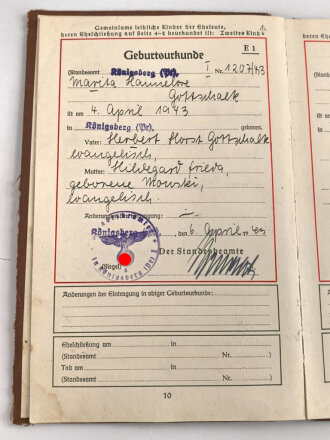 Gemeinsame leibliche Kinder der Eheleute,
deren Eheschließung auf Seite 4–8 beurkundet ist: Zweites Kind
Geburtsurkunde E 1
(Standesamt Königsberg (Pr). I Nr. 1207/43
Marita Hannelore
Gottschalk
ist am 4. April 1943
in Königsberg (Pr) geboren.
Vater: Herbert Horst Gottschalk
evangelisch,
Mutter: Hildegard Frieda,
geborene Mowski,
evangelisch.
Änderungen der Eintragung: —
Königsberg den 6. April 1943
Der Standesbeamte
(Siegel)
Änderungen der Eintragung in obiger Geburtsurkunde:
Eheschließung am in
(Standesamt Nr. )
Tod am in
(Standesamt Nr. )
10